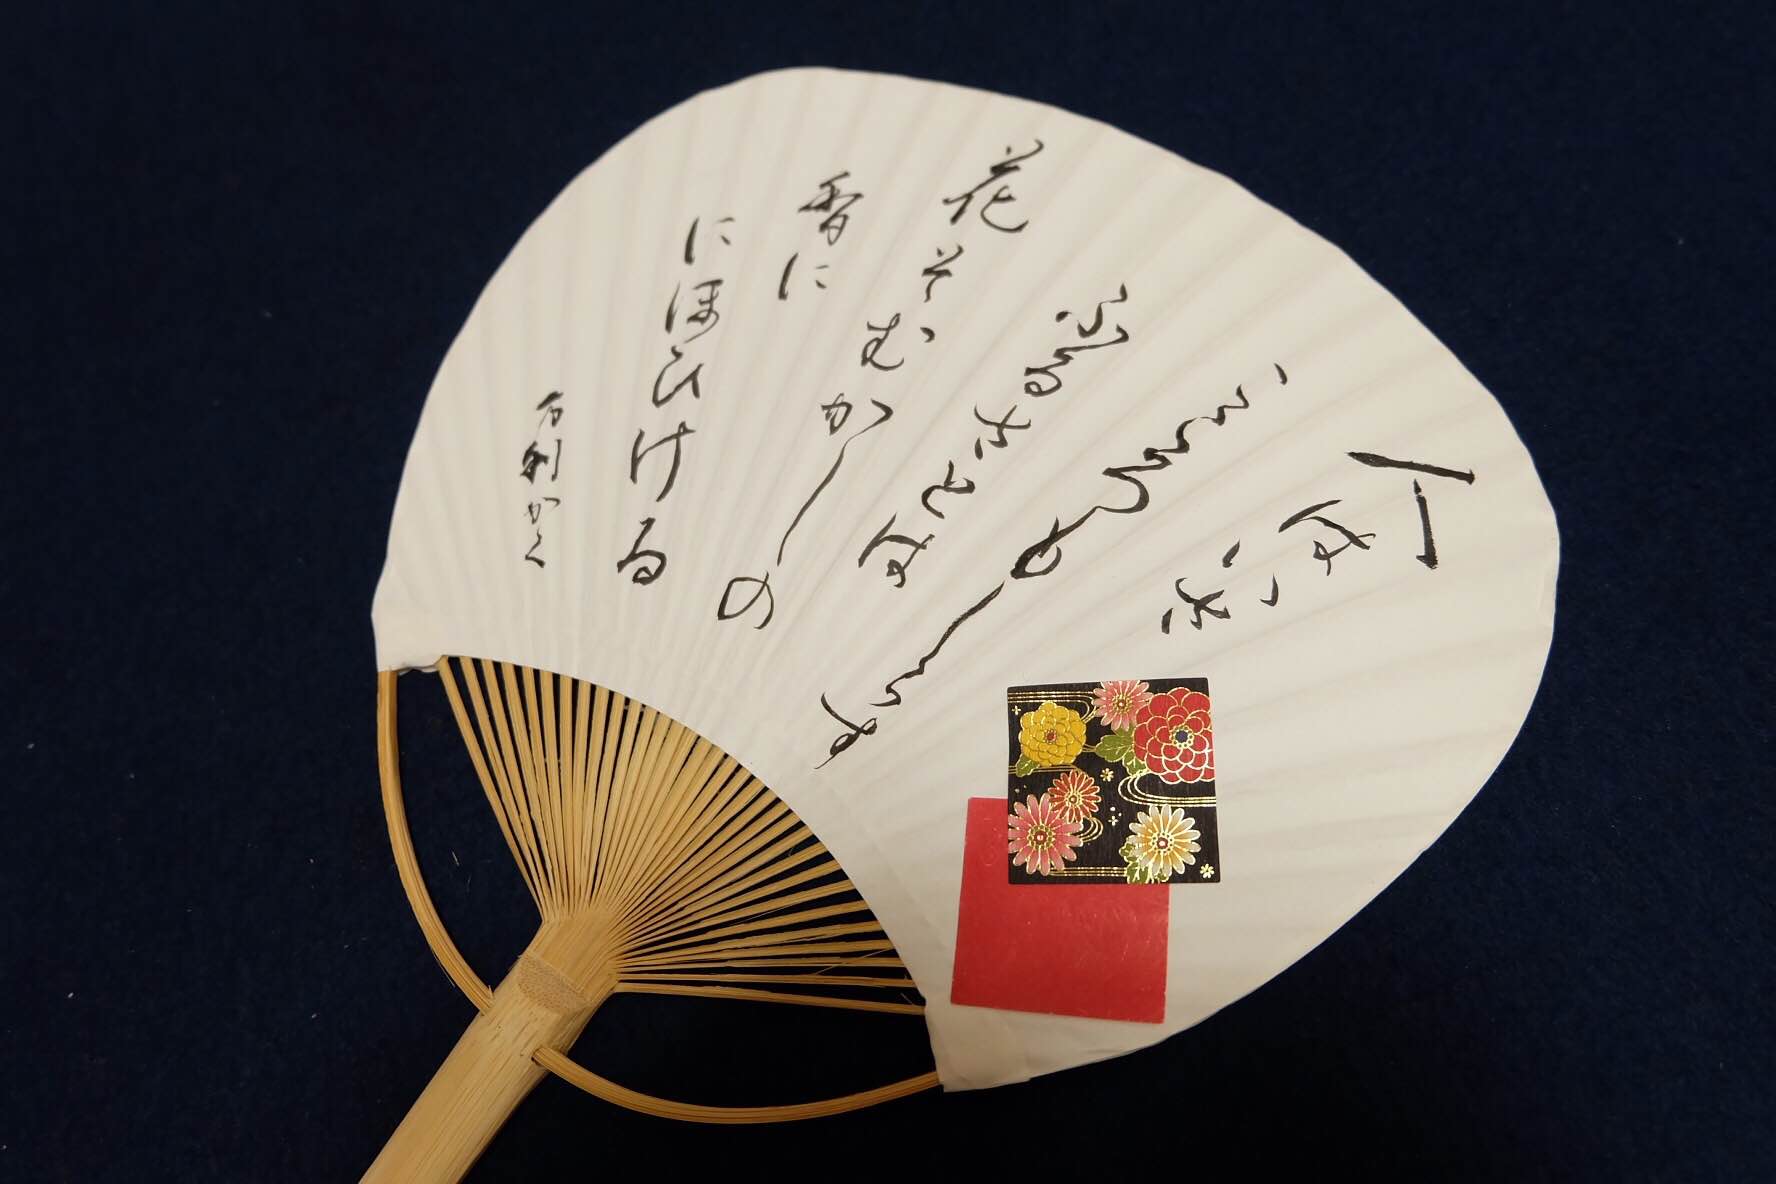 人はいさ
こころもしらす
ふるさとは
花そむかしの
香に
にほひける
万利かく